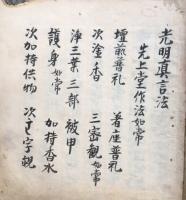 光明真言法
先上堂作法如常
壇前普礼　着座普礼
次塗香　三密観如常
浄三業　三部　被甲
護身如常　加持香水
次加持供物　次字観